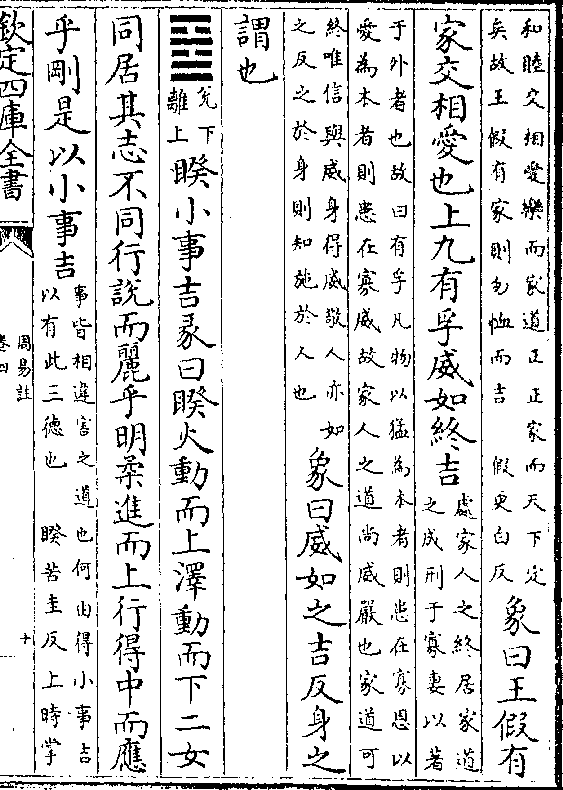 和睦交相愛樂而家道正正家而天下定
矣故王假有家則勿恤而吉　假更白反
象曰王假有
家交相愛也上九有孚威如終吉
處家人之終居家道
之成刑于寡妻以著
于外者也故曰有孚凡物以猛為本者則患在寡恩以
愛為本者則患在寡威故家人之道尚威嚴也家道可
終唯信與威身得威敬人亦如
之反之於身則知施於人也
象曰威如之吉反身之
謂也
兌下
離上
睽小事吉彖曰睽火動而上澤動而下二女
同居其志不同行說而麗乎明柔進而上行得中而應
乎剛是以小事吉
事皆相違害之道也何由得小事吉
以有此三德也　睽苦圭反上時掌
欽定四庫全書
周易註
卷四
十